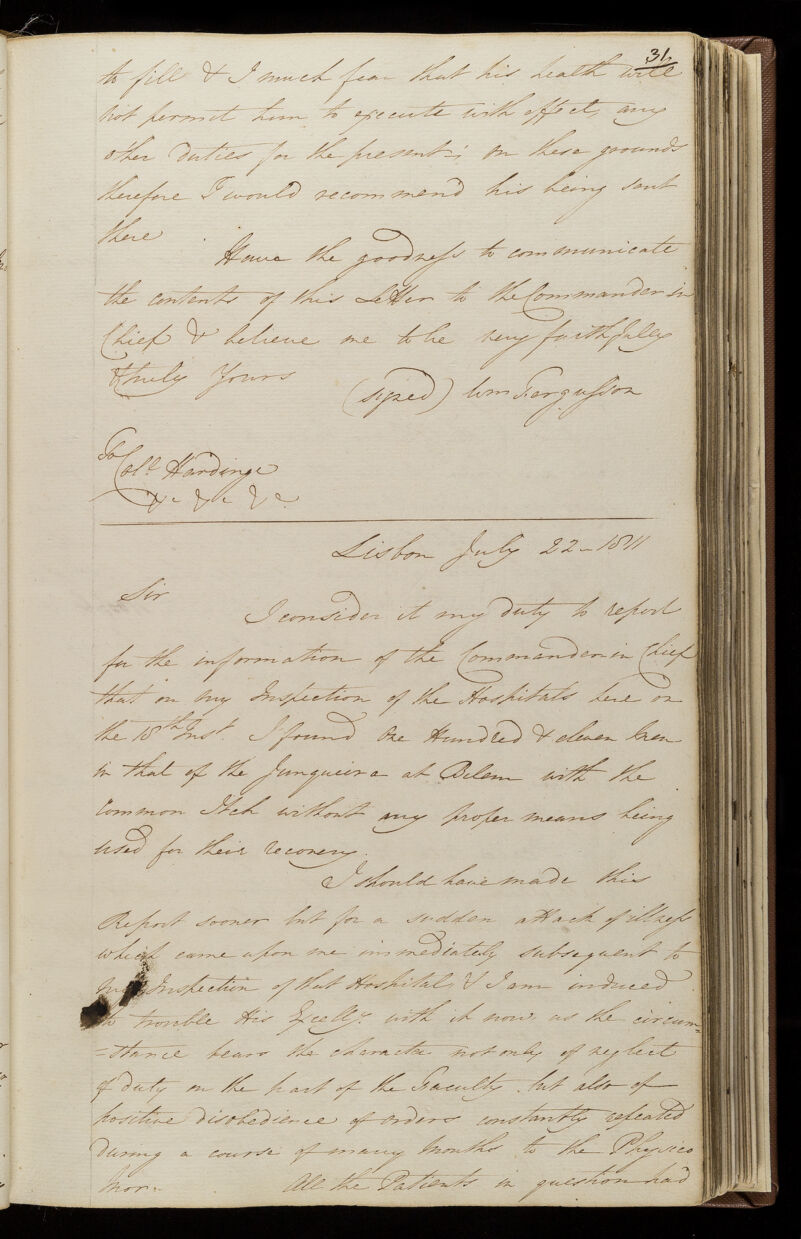 31
to fill & I much fear that his health will
not permit him to execute with effect, any
other duties for the present; on these grounds
therefore I would recommend his being sent
there.
Have the goodness to communicate
the contents of this Letter to the Commander in
Chief & believe me to be very faithfully
& truly Yours
(signed) Wm Fergusson
To
Coll. Hardinge
&c &c &c
Lisbon July 22 - 1811
Sir
I consider it my duty to report
for the information of the Commander in Chief
that on my Inspection of the Hospitals here on
the 18th Inst. I found One Hundred & eleven Men
in that of the Junqueira at Belem with the
Common Itch without any proper means being
used for their recovery.
I should have made this
Report sooner but for a sudden attack of illness
which came upon me immediately subsequent to
my Inspection of that Hospital, & I am induced
to trouble His Excelly. with it now, as the circum=
=stance bears the character not only of neglect
of duty on the part of the Faculty but also of
positive disobedience of orders constantly repeated
during a course of many Months to the Physico
Mor. All the Patients in question had